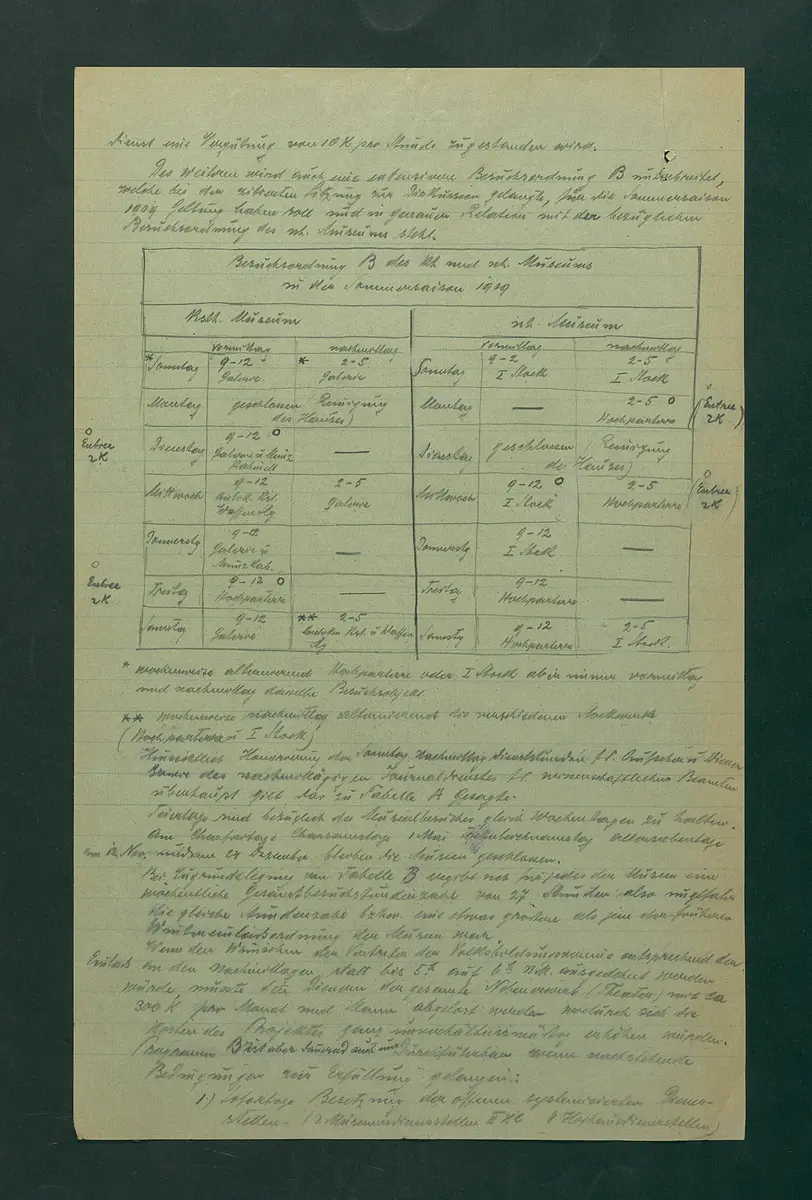 Dienst eine Vergütung von 10 K pro Stunde zugestanden wird.
Des weiteren wird auch eine extensivere Besuchsordnung B unterbreitet,
welche bei der zitierten Sitzung zur Diskussion gelangte, für die Sommersaison
1909 Geltung haben soll und in genauer Relation mit der bezüglichen
Besuchsordnung des nh. Museums steht.
Besuchsordnung B des kh und nh. Museums
in der Sommersaison 1909
Ksth. Museum
nh. Museum
Vormittag nachmittag Vormittag nachmittag
* Sonntag 9-12 Galerie * 2-5 Galerie Sonntag 9-2 I Stock 2-5 I Stock
Montag geschlossen Reinigung des Hauses) Montag — 2-5 o Hochparterre (o Entree 2K)
o Entree 2K Dienstag 9-12 o Galerie u Münz — Dienstag geschlossen (Reinigung des Hauses)
Mittwoch 9-12 Antik. Kst. Waffenslg 2-5 Galerie Mittwoch 9-12 o I Stock 2-5 Hochparterre (o Entree 2K)
Donnerstg 9-12 Galerie u Münzkab. — Donnerstg 9-12 I Stock —
o Entree 2K Freitag 9-12 o Hochparterre — Freitag 9-12 Hochparterre —
Samstag 9-12 Galerie ** 2-5 Antiken Kst. u Waffen Slg Samstg 9-12 Hochparterre 2-5 I Stock.
* wochenweise alternierend Hochparterre oder I Stock aber immer vormittag
und nachmittag dasselbe Besuchsobjekt.
** wochenweise nachmittag alternierend die verschiedenen Stockwerke
(Hochparterre u I Stock)
Hinsichtlich Honorierung der Sonntag Nachmittag Dienststunden f. d. Aufseher u Diener
sowie des nachmittägigen Journaldienstes f. d. wissenschaftlichen Beamten
überhaupt gilt das zu Tabelle A Gesagte.
Feiertage sind bezüglich des Museumbesuches gleich Wochentagen zu halten.
Am Charfreitage Charsamstage 1 Mai Frohnleichnamstag Allerseelentage
vom 12. Nov. und am 24 Dezember bleiben die Museen geschlossen.
Bei Zugrundelegung von Tabelle B ergibt sich für jedes der Museen eine
wöchentliche Gesamtbesuchstundenzahl von 27 Stunden also ungefähr
die gleiche Stundenzahl bzhw. eine etwas größere als jene der früheren
Wintereinlassordnung der Museen war.
Wenn den Wünschen der Vertreter der Volksbildungsvereine entsprechend der
Einlass an den Nachmittagen statt bis 5h auf 6h N.M. ausgedehnt werden
würde müsste den Dienern der gesamte Nebenerwerb (Theater) mit ca
300 K pro Monat und Mann abgelöst werden wodurch sich die
Kosten des Projektes ganz unverhältnismäßig erhöhen würden.
Programm B ist aber dauernd auch nur Durchführbar wenn nachstehende
Bedingungen zur Erfüllung gelangen:
1.) Sofortige Besetzung der offenen systemisierten Diener-
stellen - (2 Museumsdienerstellen II Kl 8 Hausdienerstellen)